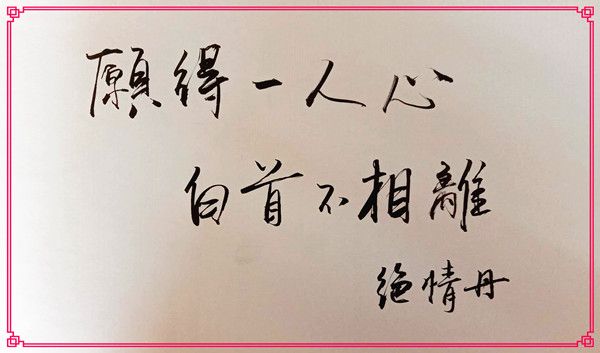 願得一人心
白首不相離
絕情丹